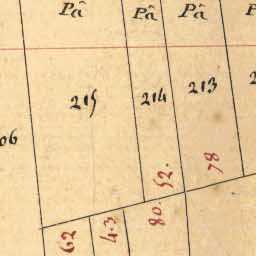 Pâ Pâ Pâ
215 214 213
06
52. 78
62 43 80.